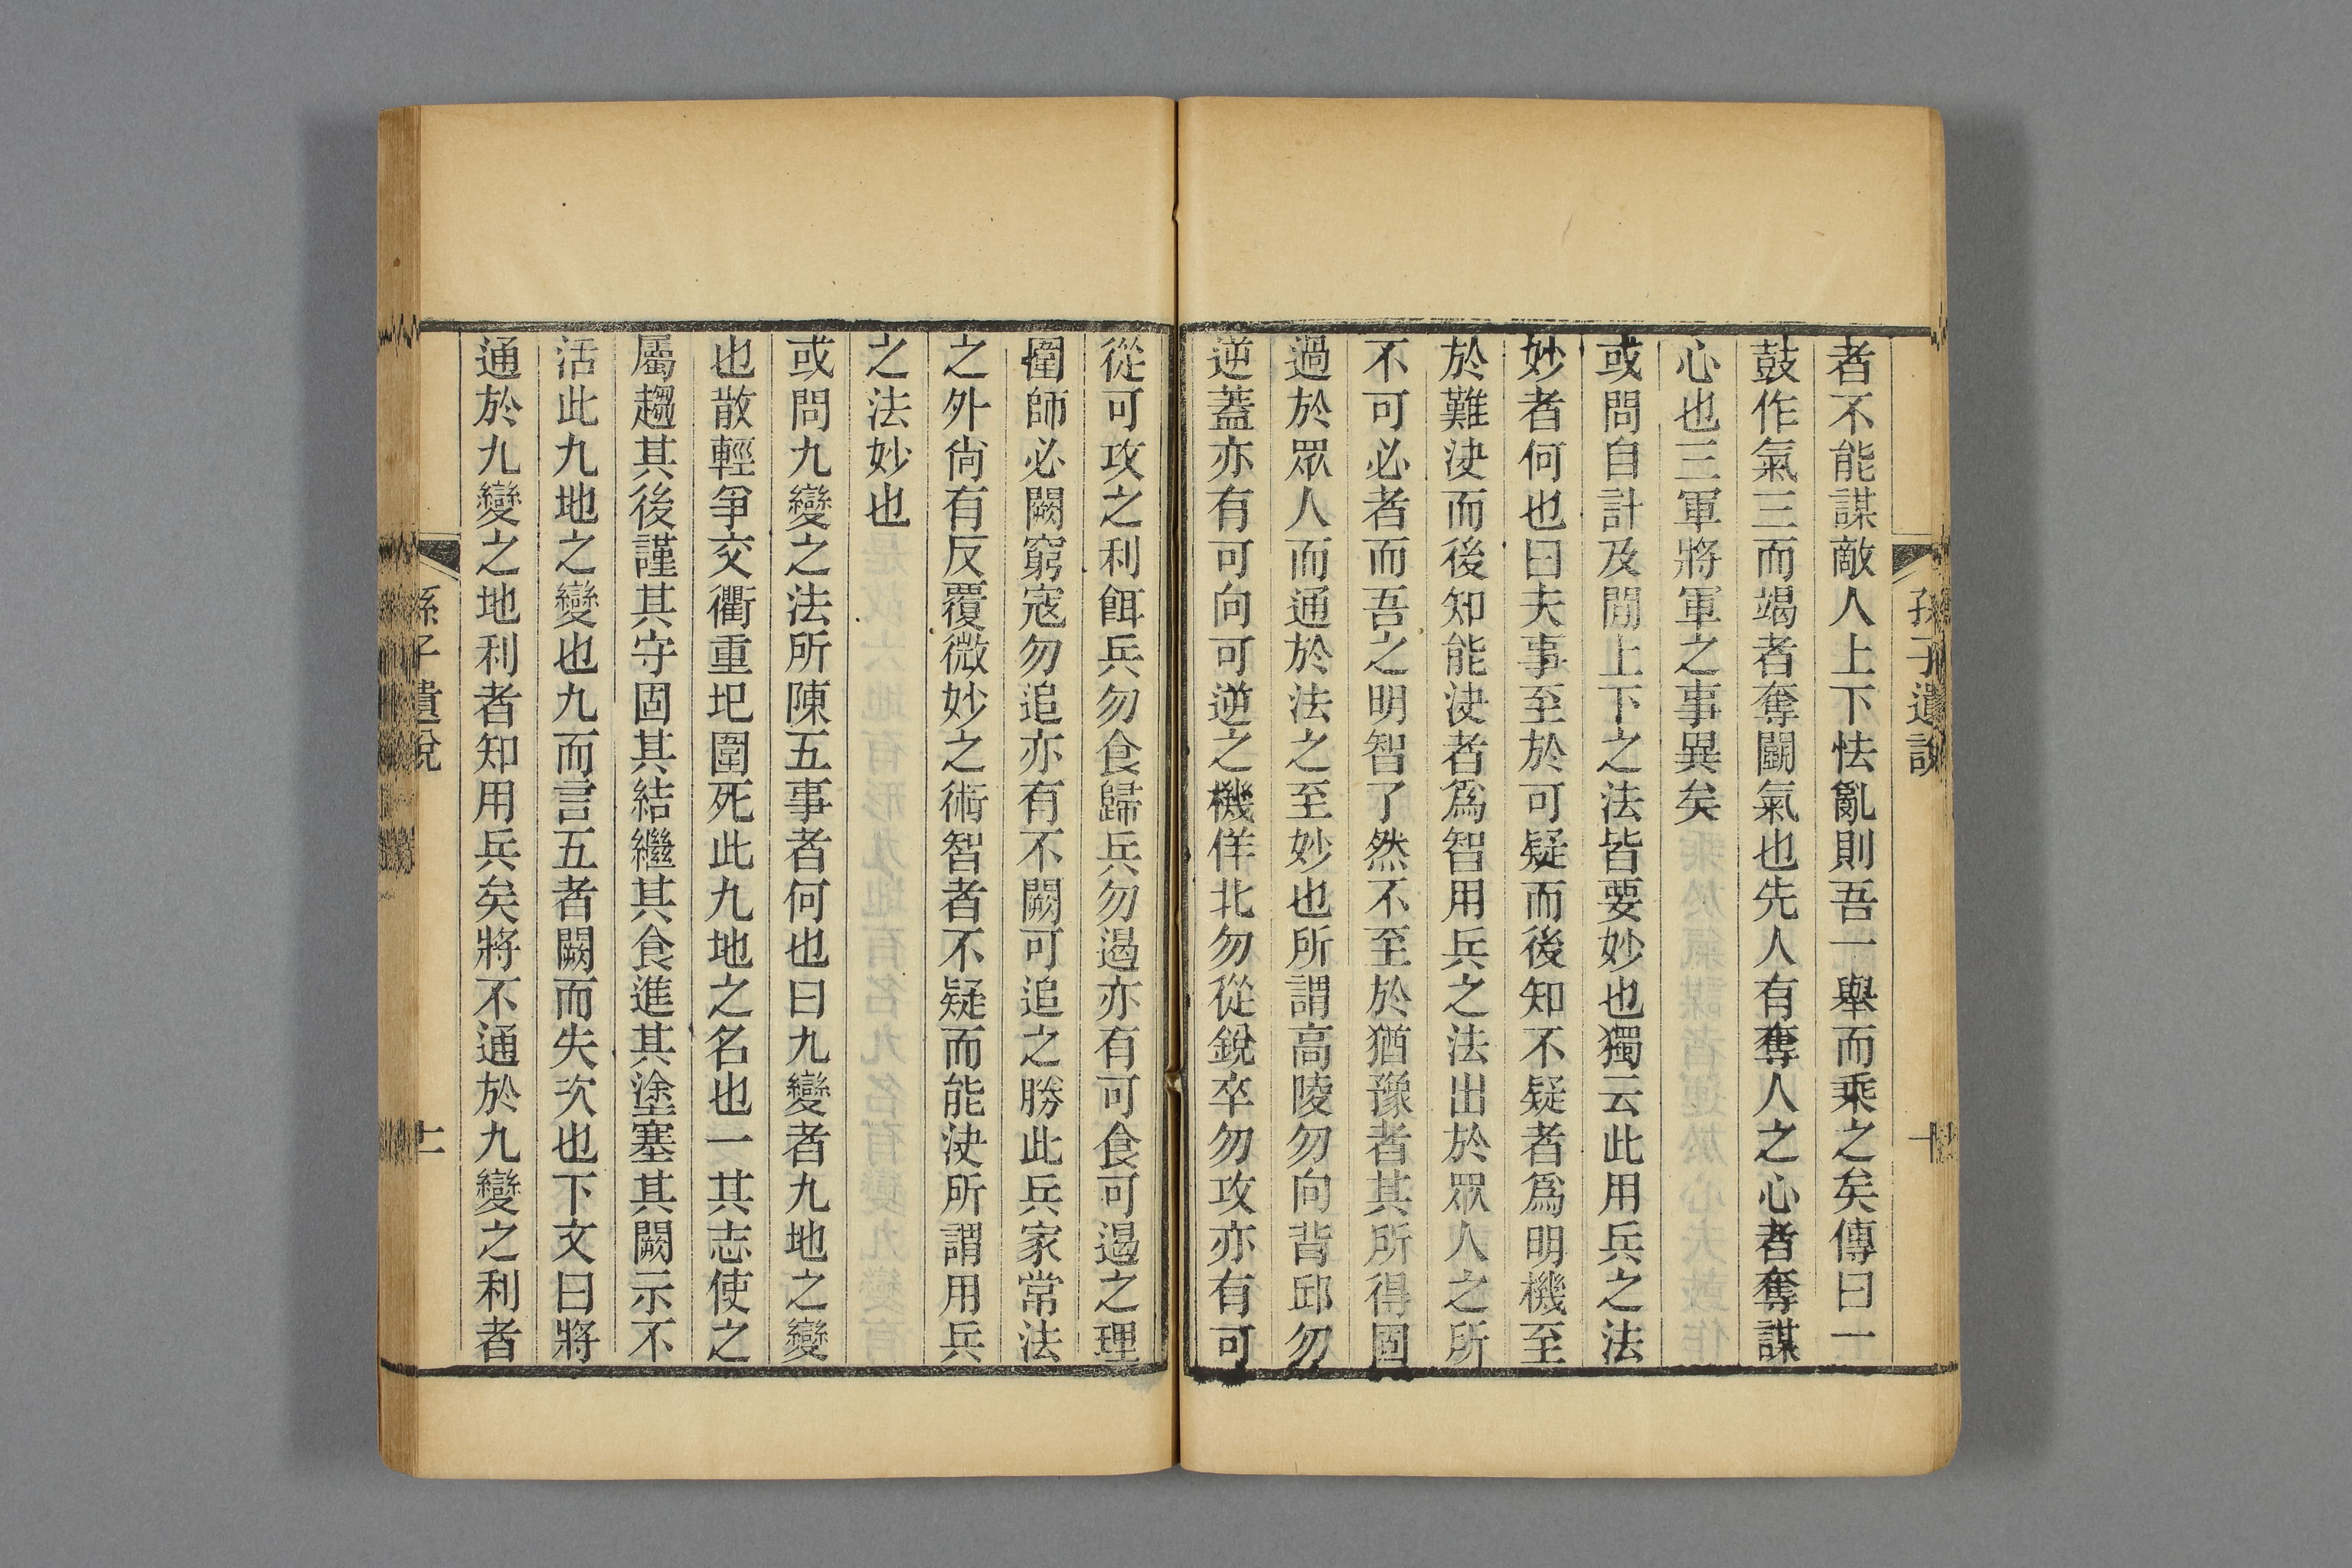 孫子遺說
者不能謀敵人上下怯亂則吾一舉而乘之矣傳曰一
鼓作氣三而竭者奪鬬氣也先人有奪人之心者奪謀
心也三軍將軍之事異矣
或問自計及閒上下之法皆要妙也獨云此用兵之法
妙者何也曰夫事至於可疑而後知不疑者爲明機至
於難決而後知能決者爲智用兵之法出於眾人之所
不可必者而吾之明智了然不至於猶豫者其所得固
過於眾人而通於法之至妙也所謂高陵勿向背邱勿
逆蓋亦有可向可逆之機佯北勿從銳卒勿攻亦有可
從可攻之利餌兵勿食歸兵勿遏亦有可食可遏之理
圍師必闕窮寇勿追亦有不闕可追之勝此兵家常法
之外尙有反覆微妙之術智者不疑而能決所謂用兵
之法妙也
或問九變之法所陳五事者何也曰九變者九地之變
也散輕爭交衢重圯圍死此九地之名也一其志使之
屬趨其後謹其守固其結繼其食進其塗塞其闕示不
活此九地之變也九而言五者闕而失次也下文曰將
通於九變之地利者知用兵矣將不通於九變之利者
孫子遺說